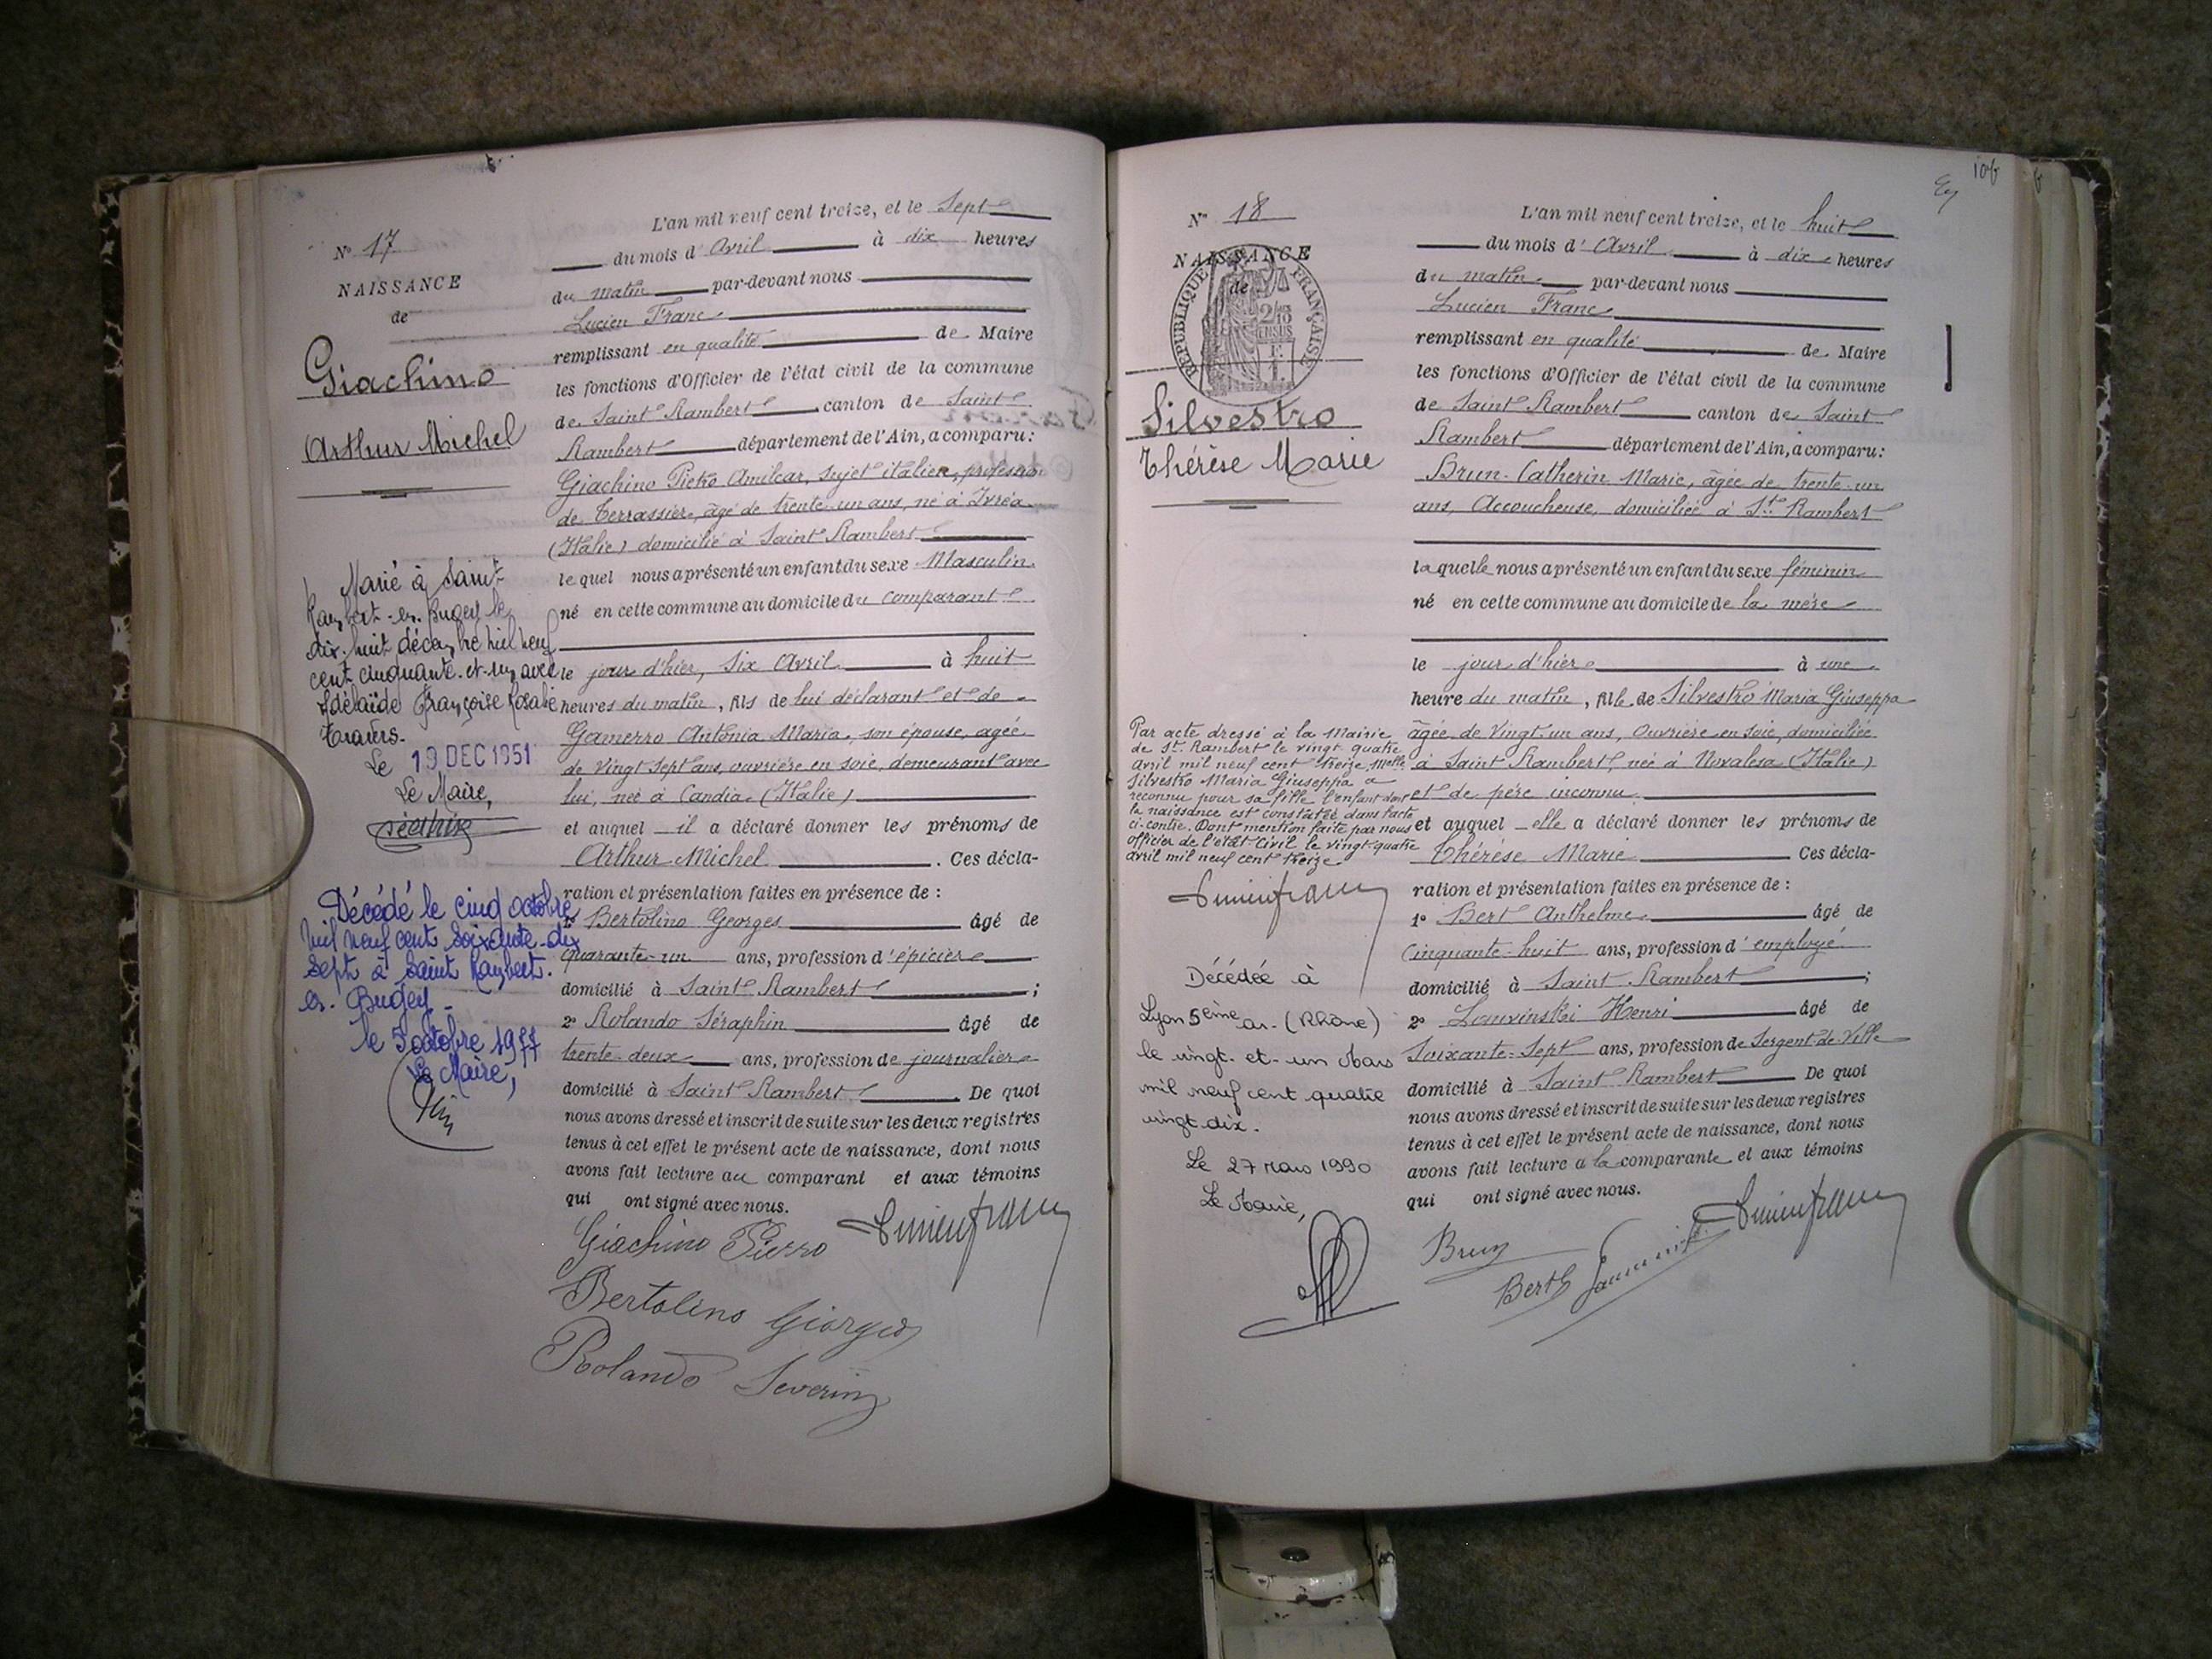 N° 17
NAISSANCE
de
Giachino
Arthur Michel
Marié à Saint
Rambert-en-Bugey le
dix-huit décembre mil neuf
cent cinquante-et-un avec
Adélaïde Françoise Rosalie
Travers.
Le 19 DEC 1951
Le Maire,
Décédé le cinq octobre
mil neuf cent soixante-dix
sept à Saint Rambert.
en-Bugey-
le 5 octobre 1977
Le Maire,
L'an mil neuf cent treize, et le Sept
du mois d'Avril à dix heures
du matin par-devant nous
Lucien Franc
remplissant en qualité de Maire
les fonctions d'Officier de l'état civil de la commune
de Saint Rambert canton de Saint
Rambert département de l'Ain, a comparu:
Giachino Pietro Amilcar, sujet italien, profession
de terrassier, âgé de trente-un ans, né à Ivréa
(Italie) domicilié à Saint Rambert
lequel nous a présenté un enfant du sexe Masculin
né en cette commune au domicile du comparant
le jour d'hier, Six Avril à huit
heures du matin, fils de lui déclarant et de
Gamerro Antonia Maria, son épouse, agée
de Vingt Sept ans, ouvrière en soie, demeurant avec
lui, née à Candia (Italie)
et auquel il a déclaré donner les prénoms de
Arthur Michel. Ces décla-
ration et présentation faites en présence de :
1° Bertolino Georges âgé de
quarante-un ans, profession d'épicier
domicilié à Saint Rambert ;
2° Rolando Séraphin âgé de
trente-deux ans, profession de journalier
domicilié à Saint Rambert. De quoi
nous avons dressé et inscrit de suite sur les deux registres
tenus à cet effet le présent acte de naissance, dont nous
avons fait lecture au comparant et aux témoins
qui ont signé avec nous.
Giachino Pietro
Lucien Franc
Bertolino Giorgio
Rolando Severin
106
N° 18
NAISSANCE
de
RÉPUBLIQUE FRANÇAISE
2/10
EN SUS
Silvestro
Thérèse Marie
Par acte dressé à la Mairie
de St. Rambert le vingt quatre
avril mil neuf cent treize, Melle
Silvestro Maria Giuseppa a
reconnu pour sa fille l'enfant dont
la naissance est constatée dans l'acte
ci-contre. Dont mention faite par nous
officier de l'état civil le vingt-quatre
avril mil neuf cent treize
Lucien Franc
Décédée à
Lyon 5ème ar. (Rhône)
le vingt-et-un Mars
mil neuf cent quatre
vingt dix.
Le 27 mars 1990
Le Maire,
L'an mil neuf cent treize, et le huit
du mois d'Avril à dix heures
du matin par-devant nous
Lucien Franc
remplissant en qualité de Maire
les fonctions d'Officier de l'état civil de la commune
de Saint Rambert canton de Saint
Rambert département de l'Ain, a comparu:
Brun-Catherin Marie, âgée de trente-un
ans, Accoucheuse, domiciliée à St. Rambert
laquelle nous a présenté un enfant du sexe féminin
né en cette commune au domicile de la mère
le jour d'hier à une
heure du matin, fille de Silvestro Maria Giuseppa
âgée de Vingt-un ans, Ouvrière en soie, domiciliée
à Saint Rambert, née à Novalesa (Italie)
et de père inconnu
et auquel elle a déclaré donner les prénoms de
Thérèse Marie Ces décla-
ration et présentation faites en présence de :
1° Bert Anthelme âgé de
Cinquante-huit ans, profession d'employé
domicilié à Saint Rambert ;
2° Lauvinski Henri âgé de
Soixante-Sept ans, profession de Sergent-de-Ville
domicilié à Saint Rambert De quoi
nous avons dressé et inscrit de suite sur les deux registres
tenus à cet effet le présent acte de naissance, dont nous
avons fait lecture à la comparante et aux témoins
qui ont signé avec nous.
Lucien Franc
Brun
Berth